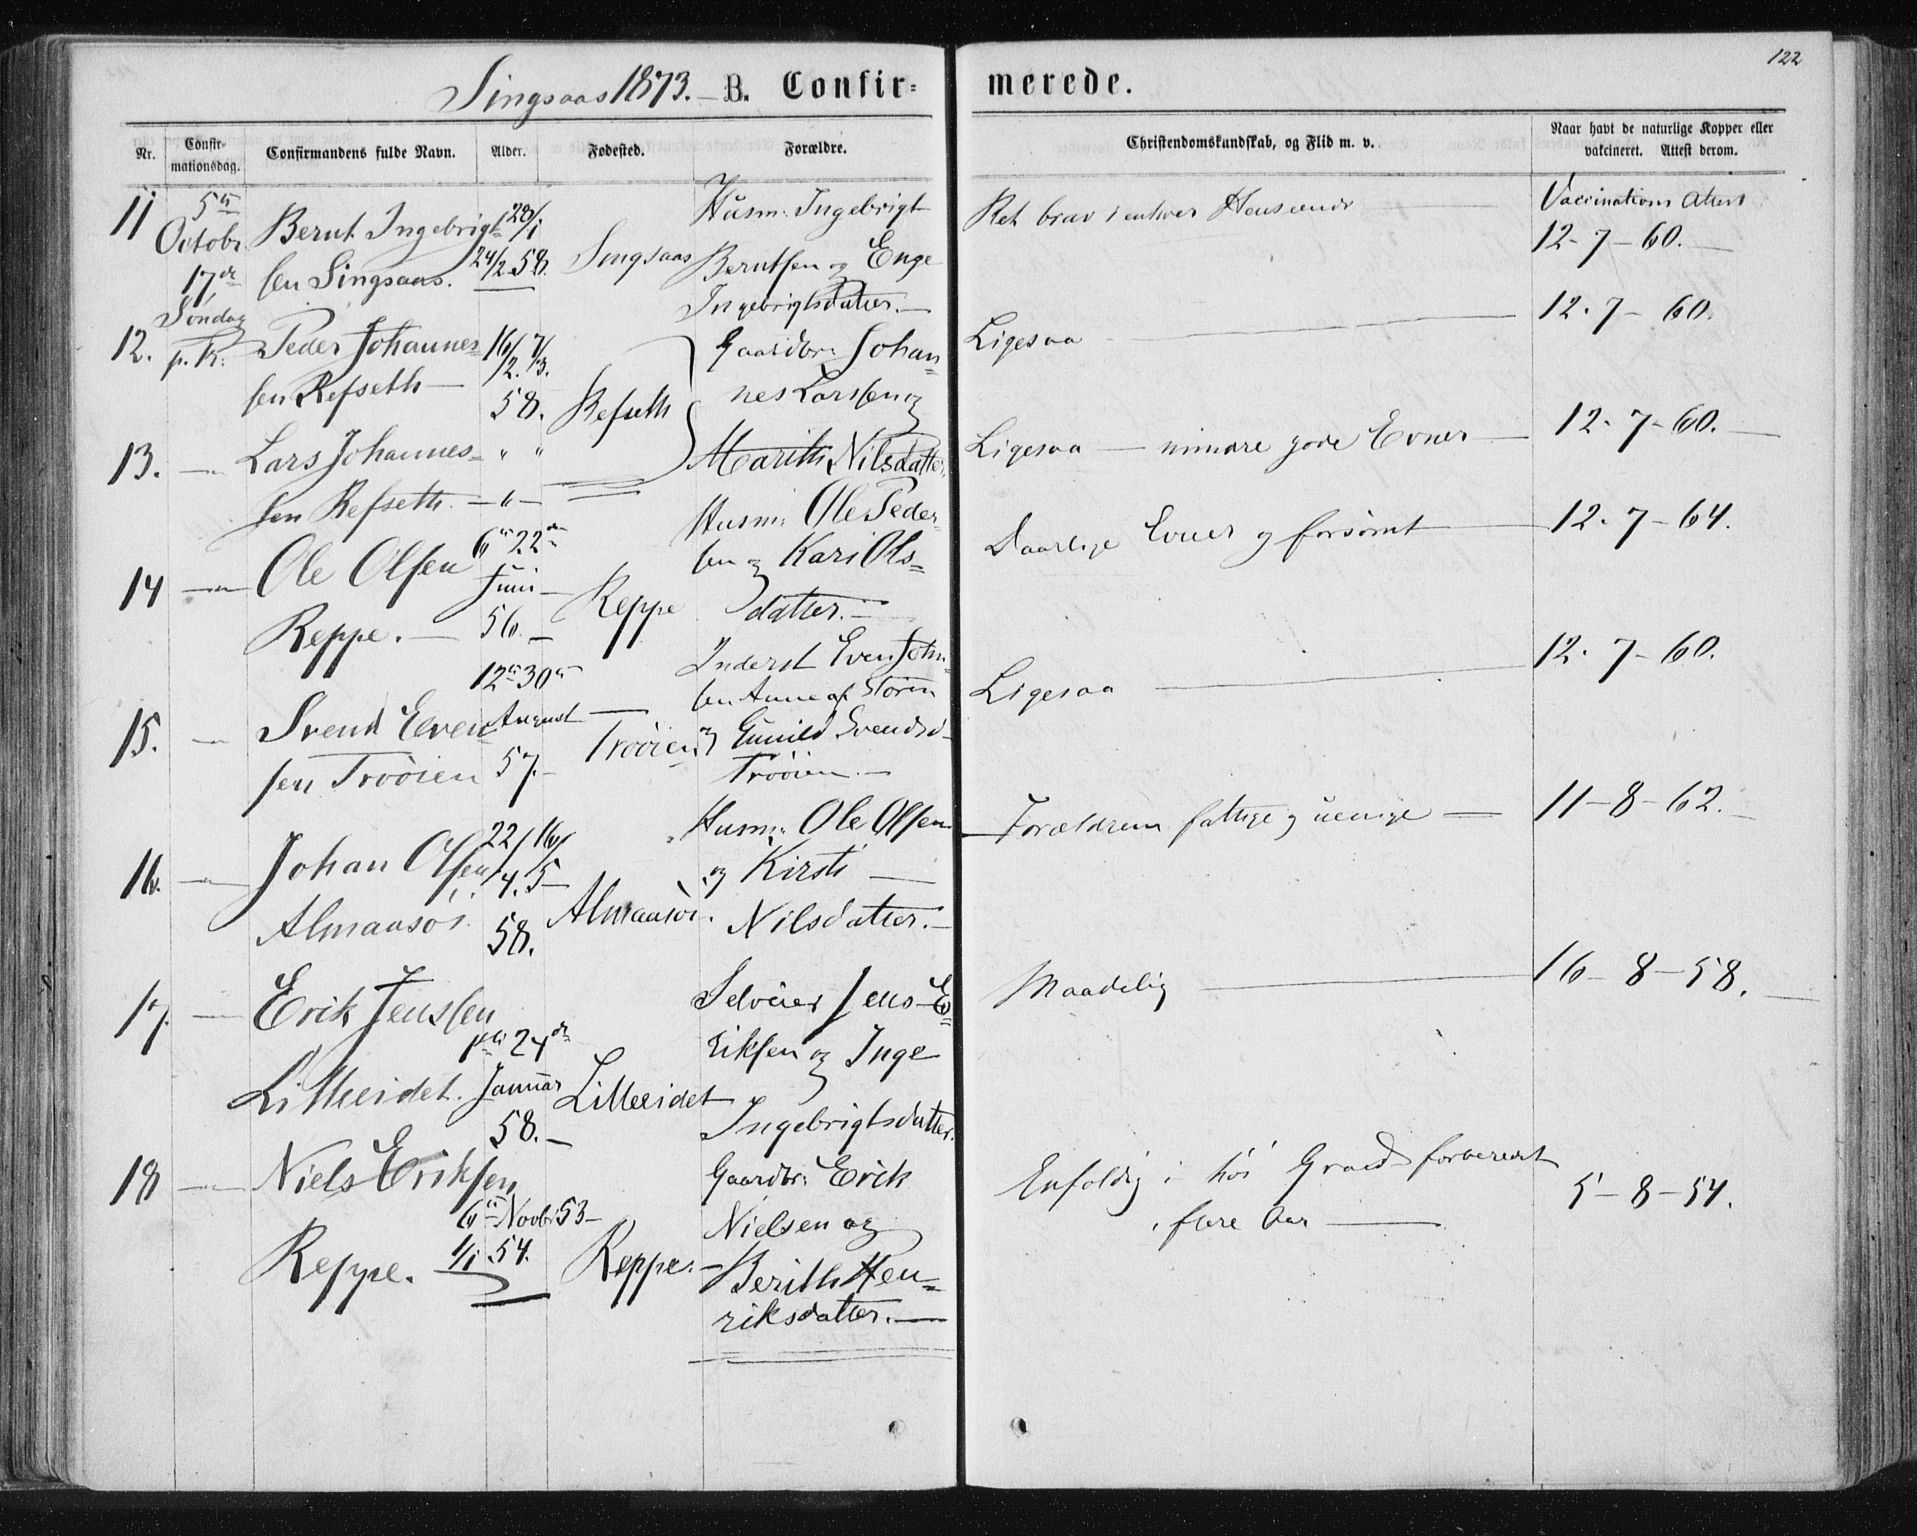 122
Singsaas 1873. B. Confir=
merede.
Nr.
Confir-
mationsdag.
Confirmandens fulde Navn.
Alder.
Fødested.
Forældre.
Christendomskundskab, og Flid m. v.
Naar havt de naturlige Kopper eller
vakcineret. Attest derom.
11
5te
Octobr.
17de
Søndag
p. Tr.
Bernt Ingebrigt-
sen Singsaas.
28/1
24/2 58.
Singsaas
Husm: Ingebrigt
Berntsen og Enge
Ingebrigtsdatter.
Ret brav i enhver Henseende
Vaccinations Attest
12-7-60.
12.
Peder Johannes-
sen Refseth
16/2. 7/3.
58.
Refseth
Gaardbr: Johan=
nes Larssen og
Marith Nilsdatter.
Ligesaa
12.7-60.
13. — " —
Lars Johannes=
sen Refseth.
" "
— " —
Ligesaa — mindre gode Evner
12-7-60.
14 — " —
Ole Olsen
Reppe.
6te 22de
Juni
56.
Reppe
Husm: Ole Peder-
sen og Kari Ols=
datter.
Daarlige Evner og forsømt
12.7-64.
15. — " —
Svend Even-
sen Trøøien
12te 30te
August
57.
Trøøien
Inderst Even John-
sen Aune af Støren
og Gunild Svendsd-
Trøøien.
Ligesaa
12.7-60.
16. — " —
Johan Olsen
Almaasøi.
22/4. 16/5
58.
Almaasøi.
Husm: Ole Olsen
og Kirsti
Nilsdatter.
Forældrene fattige og uenige
11-8-62.
17. — " —
Erik Jenssen
Lilleeidet.
1ste 24de
Januar
58.
Lilleeidet
Selveier Jens E=
riksen og Inge
Ingebrigtsdatter.
Maadelig
16-8-58.
18 — " —
Niels Eriksen
Reppe.
6te Novbr 53
1/1 .54.
Reppe.
Gaardbr: Erik
Nielsen og
Berith Hen=
riksdatter.
Enfoldig i høi Grad forberedt
i flere Aar
5-8-54.